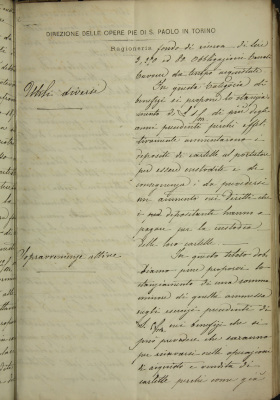 DIREZIONE DELLE OPERE PIE DI S. PAOLO IN TORINO
Ragioneria
fondo di riserva di lire
ed 82 Obbligazioni Canali
Cavour da tempo acquistate
Utili diversi
In questa Categoria di
benefizi si propone lo stanzia-
mento di di più degli
anni precedenti perchè
aumentarono i
depositi di cartelle al portatore
per essere custodite e di
conseguenza è da prevedersi
un aumento nei diritti che
i depositanti hanno a
pagare per la custodia
delle loro cartelle.
Sopravvenienze attive
In questo titolo dob-
biamo pure proporre lo
stanziamento di una somma
minore di quella ammessa
negli esercizi precedenti di
nei benefizi che si
può prevedere che saranno
per ricavarsi nelle operazioni
di acquisto e vendita di
cartelle, perchè come già